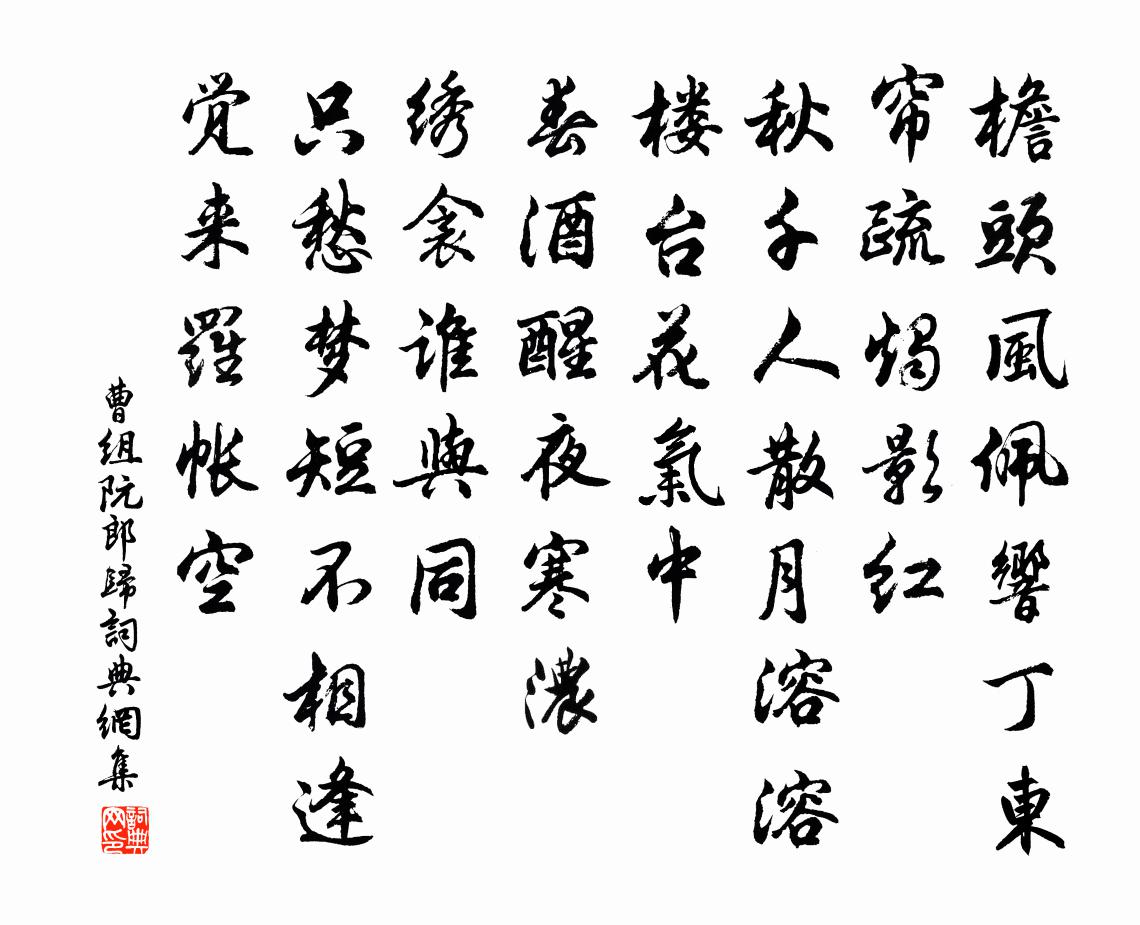 檐頭風佩響丁東
帘疏燭影红
秋千人散月溶溶
楼台花氣中
春酒醒夜寒濃
绣衾谁與同
只愁梦短不相逢
觉来羅帐空
曹组阮郎歸詞典網集
詞典网印